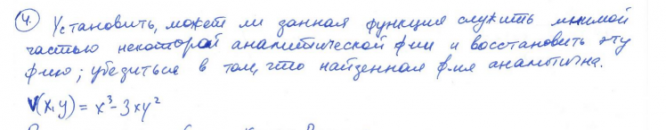 4. Установить, может ли данная функция служить мнимой
частью некоторой аналитической ф-ии и восстановить эту
ф-ию; убедиться в том, что найденная ф-ия аналитична.
V(x,y) = x³-3xy²